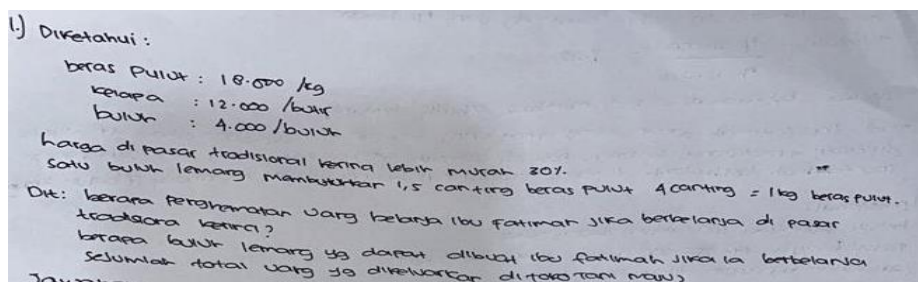 1.) Diketahui :
beras pulut : 18.000 /kg
kelapa : 12.000 /butir
buluh : 4.000 /buluh
harga di pasar tradisional kerinci lebih murah 30%.
satu buluh lemang membutuhkan 1,5 canting beras pulut 4 canting = 1 kg beras pulut.
Dit: berapa penghematan uang belanja ibu Fatimah jika berbelanja di pasar
kerinci?
berapa buluh lemang yg dapat dibuat ibu fatimah jika ia berbelanja
sejumlah total uang yg dikeluarkan di toko Tani